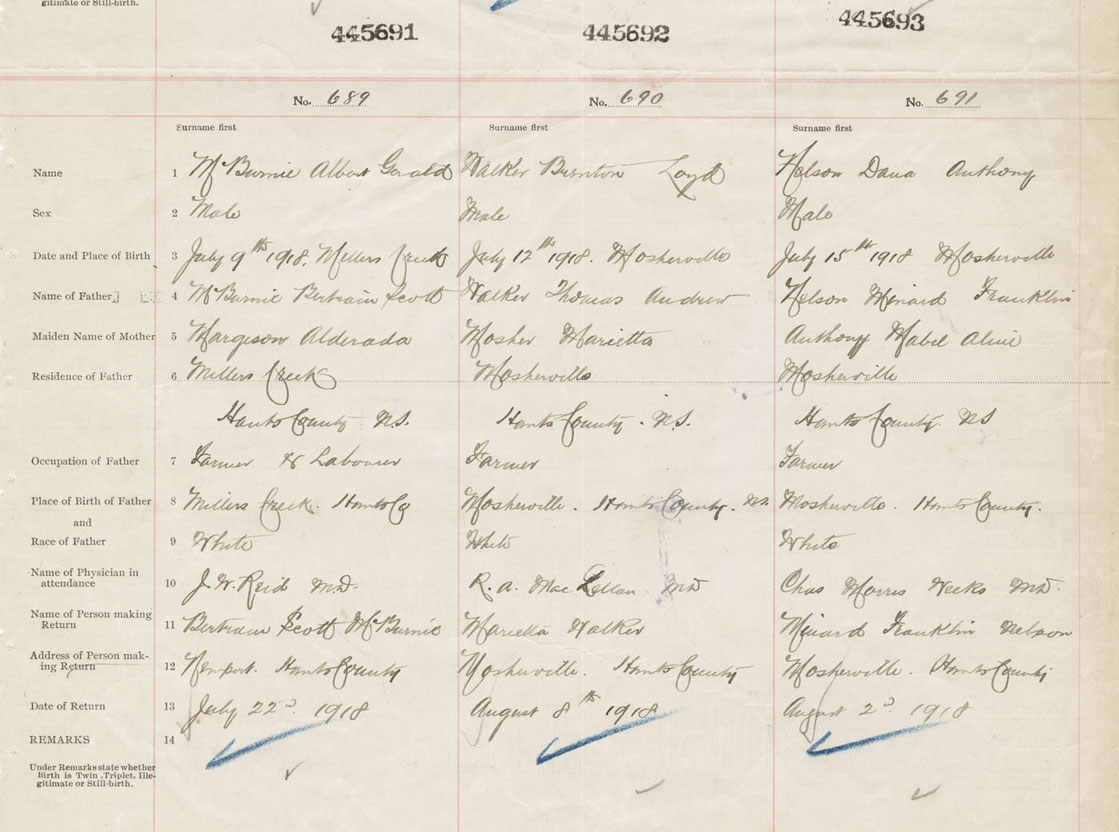 gitimate or Still-birth.
445691 445692 445693
No. 689 No. 690 No. 691
Surname first Surname first Surname first
Name 1 McBurnie Albert Gerald Walker Burnton Loyd Nelson Dana Anthony
Sex 2 Male Male Male
Date and Place of Birth 3 July 9th 1918. Millers Creek July 12th 1918. Mosherville July 15th 1918 Mosherville
Name of Father 4 McBurnie Bertram Scott Walker Thomas Andrew Nelson Minard Franklin
Maiden Name of Mother 5 Margeson Alderada Mosher Marietta Anthony Mabel Aline
Residence of Father 6 Millers Creek Mosherville Mosherville
Hants County N.S. Hants County. N.S. Hants County NS
Occupation of Father 7 Farmer & Labourer Farmer Farmer
Place of Birth of Father 8 Millers Creek. Hants Co Mosherville. Hants County. NS Mosherville. Hants County.
and
Race of Father 9 White White White
Name of Physician in
attendance 10 J. W. Reid MD. R. A. MacLellan MD Chas Morris Weeks MD.
Name of Person making
Return 11 Bertram Scott McBurnie Marietta Walker Minard Franklin Nelson
Address of Person mak-
ing Return 12 Newport Hants County Mosherville. Hants County Mosherville. Hants County
Date of Return 13 July 22d 1918 August 8th 1918 August 2d 1918
REMARKS 14
Under Remarks state whether
Birth is Twin, Triplet, Ille-
gitimate or Still-birth.